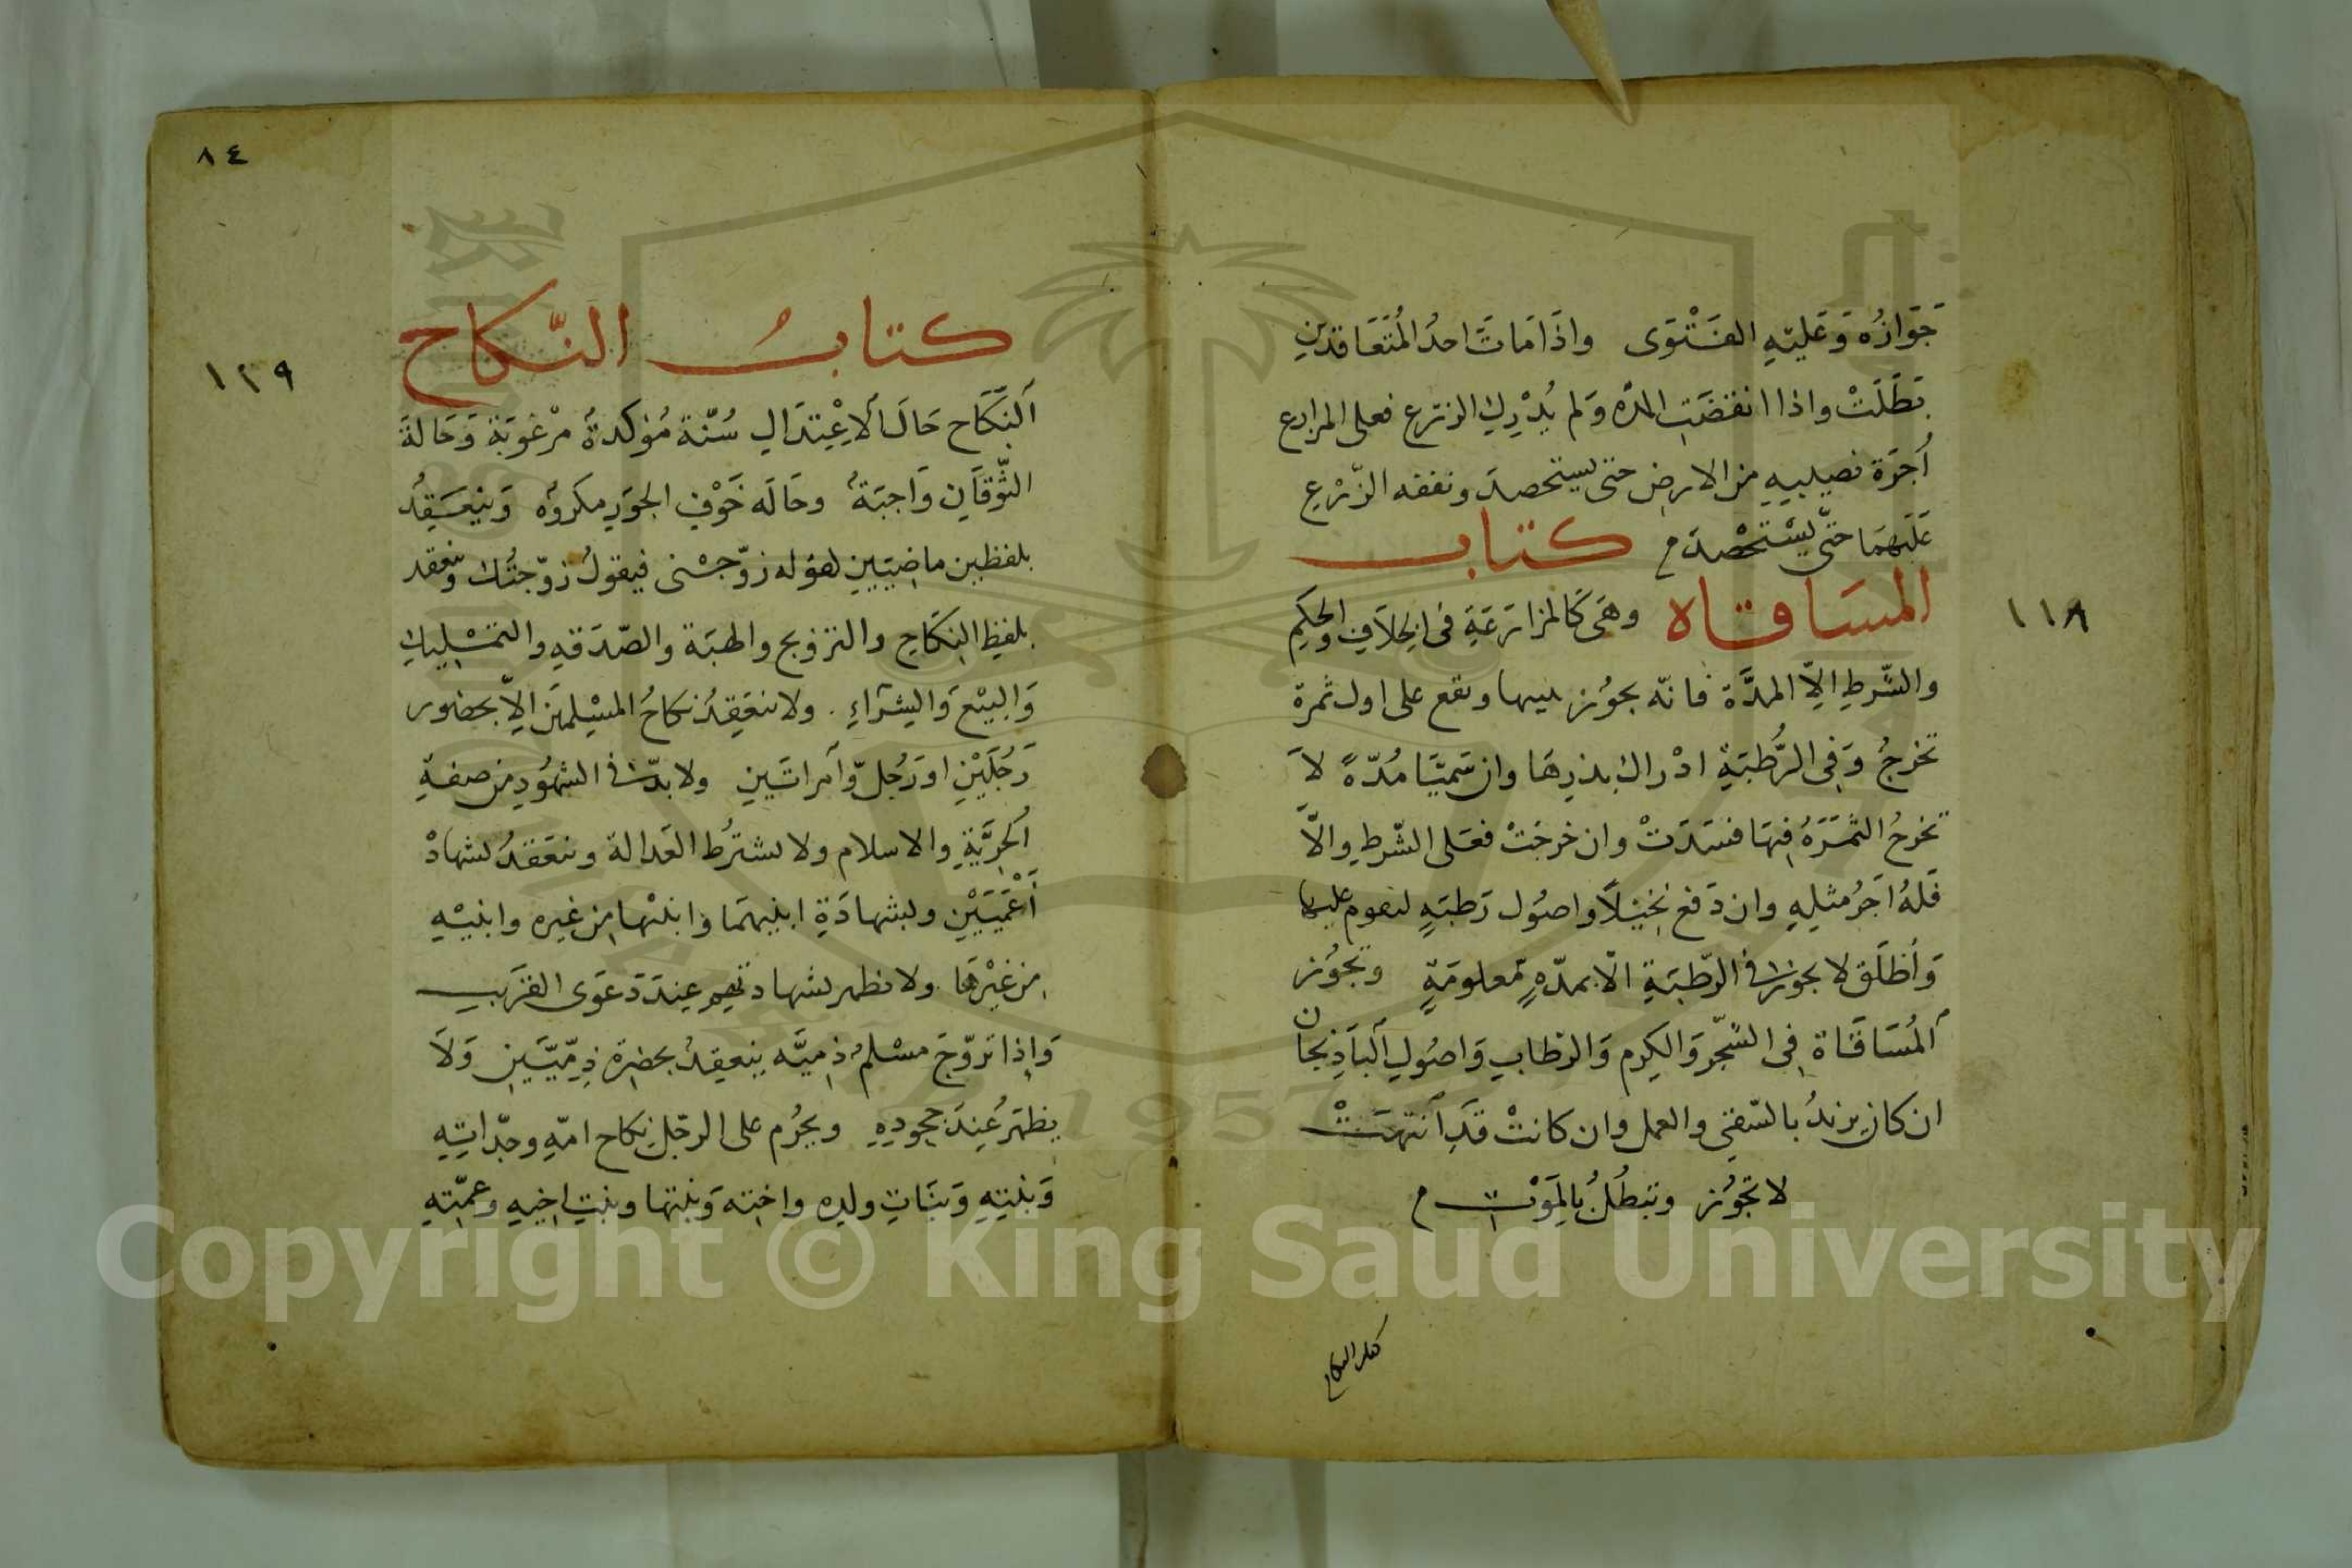 جَوَازُه وَعَلَيْهِ الفَتْوَى واذَا مَاتَ احدُ المُتَعَاقدَيْنِ
بَطَلَتْ واذا انقضَتِ المدّه وَلم يُدْرِك الزرع فعلى المزارع
أجرَة نصيبِهِ من الارضِ حتى يستحصدَ ونفقه الزّرْعِ
عَلَيْهِمَا حتّى يَسْتَحْصدَ م كتاب
المسَاقاه وهىَ كَالمزارَعَةِ فى الخِلاَفِ والحكِمِ
والشّرطِ الاّ المدَّة فانّه يجوُز وتقع على اول ثمرة
تخرجُ وَفِى الرُّطبَةِ ادْراك بذرِهَا وان سَمّيَا مُدّةً لاَ
تخرجُ الثمَرَةُ فِيهَا فسَدَتْ وان خرجَتْ فعَلى الشّرطِ والاّ
فَلهُ اَجرُ مثلِهِ وان دَفع نخِيْلاً واصوُل رَطبَةٍ ليقوم عليها
وَأطلَقَ لا يجوز فى الرّطبَةِ الاّ بمدّةٍ معلومَةٍ وتجوُز
اَلمُسَاقَاة فِى الشّجر وَالكَرم وَالرّطابِ وَاصُولِ اَلبَاذِنجان
ان كان يزيدُ بالسّقى والعمل وان كانتْ قَدِ اَنتهَتْ
لا تجوُز وتبطُلُ بالمَوْت م
كتاب النكاح
١١٨
٨٤
١٢٩
كتابُ النّكاح
اَلنّكَاح حَالَ اَلاِعْتِدَالِ سُنّة مُؤكدةٌ مرْغوبَة وَحَالةَ
التَّوَقَانِ وَاجبَةٌ وحَالَه خَوْفِ الجَوَرِ مكروُه وَيَنْعَقِدُ
بلفظين ماضيَيْنِ لقوله زوّجنى فيقولُ زوّجتُك وينعقد
بلفظِ النِكَاحِ والتزويج والهبَة والصّدَقةِ والتمْلِيكِ
وَالبيْعَ وَالشِرَاءِ . ولا ينعَقِدُ نكاحُ المسْلِمِيْنَ الاّ بحضور
رَجُلَيْنِ او رَجُل وّاَمراتَينِ ولا بدّ فى الشهُودِ من صفةِ
اَلحرِيَّةِ والاسلام ولا يشترُط العَدالة وينعَقدُ بشهادْ
اَعْمَيَيْنِ وبشهادَةِ ابنيهمَا وابنيْها مِن غيره وابنيْهِ
مِن غيْرهَا . ولا يظهر بشهادتهِم عِندَ دَعوَى القَريب
وَاِذا تزوّجَ مسْلمُ ذِميَّه ينعقِدُ بحضرة ذِمّيّيَنِ وَلاَ
يظهَرُ عِندَ جحودِهِ ويحرُم على الرجل نكاح امّهِ وجدّاتِهِ
وَبنتِهِ وَبنَاتِ ولدِه واختِه وَبنتها وبنتِ اخيِهِ وعمّتِهِ
Copyright © King Saud University
1957